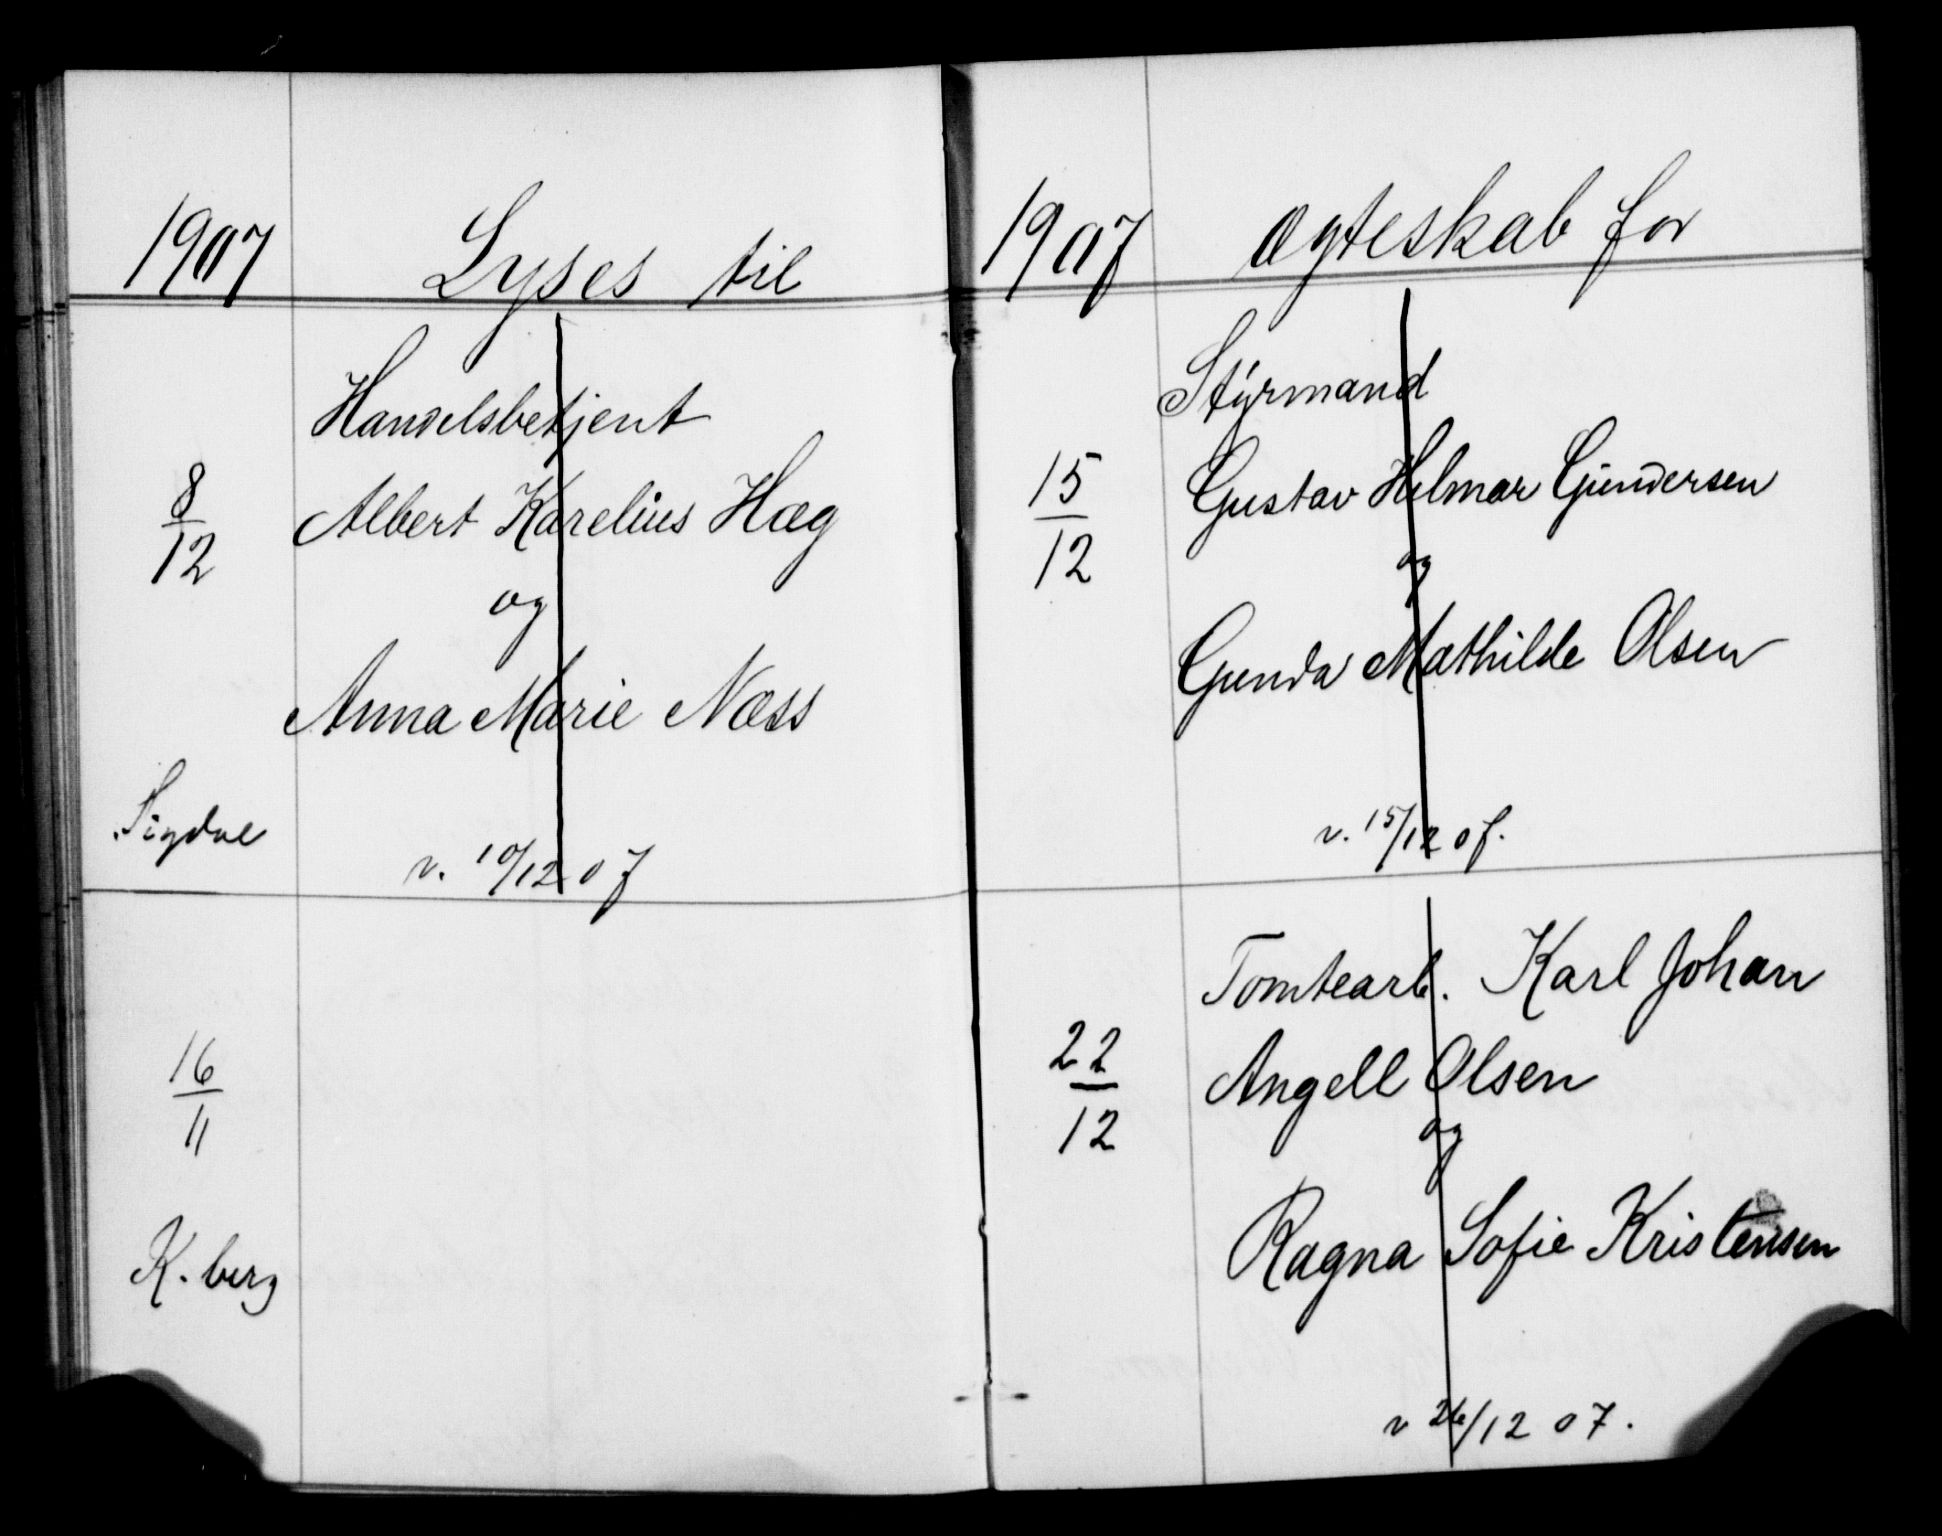 1907 Lyses til
Handelsbetjent
8/12 Albert Karelius Hæg
og
Anna Marie Næss
Sigdal
v. 10/12 07
16/11
K.berg
1907 ægteskab for
Styrmand
15/12 Gustav Hilmar Gundersen
og
Gunda Mathilde Olsen
v. 15/12 07.
Tomtearb. Karl Johan
22/12 Angell Olsen
og
Ragna Sofie Kristensen
v 26/12 07.